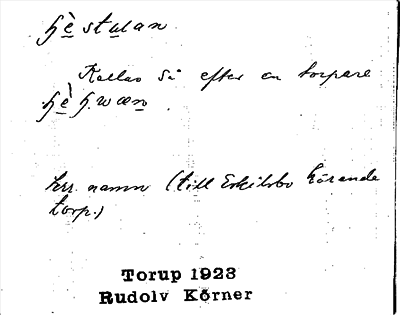 hèstulan
Kallas så efter en torpare
hèh.wæn
ters. namn (till Eskilsbo hörande
torp.)
Torup 1923
Rudolv Körner